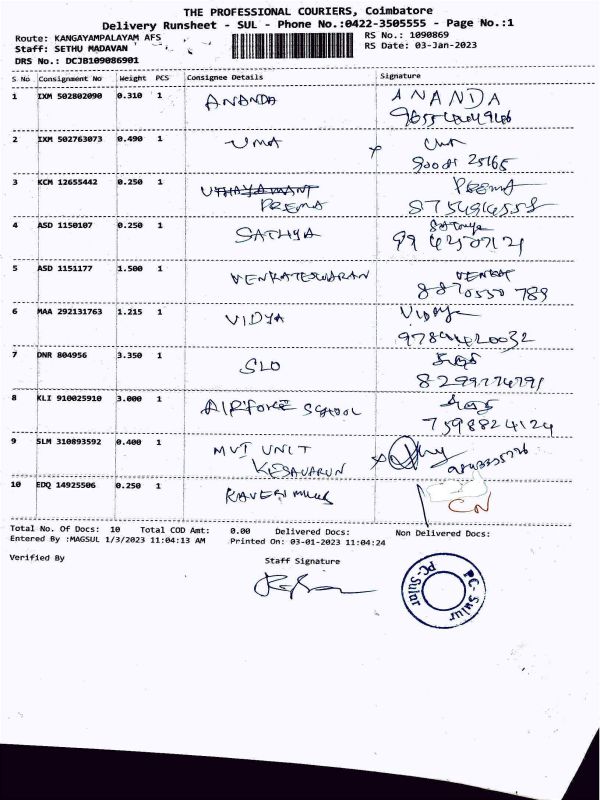 THE PROFESSIONAL COURIERS, Coimbatore
Delivery Runsheet - SUL - Phone No.:0422-3505555 - Page No.:1
Route: KANGAYAMPALAYAM AFS RS No.: 1090869
Staff: SETHU MADAVAN RS Date: 03-Jan-2023
DRS No.: DCJB109086901
S No Consignment No Weight PCS Consignee Details Signature
1 IXM 502802090 0.310 1 ANANDA ANANDA
2 IXM 502763073 0.490 1 UMA
3 KCM 12655442 0.250 1 PREMA PREEMA
4 ASD 1150107 0.250 1 SATHYA Sathya
5 ASD 1151177 1.500 1 VENKATESWARAN VENKAT
8870550 789
6 MAA 292131763 1.215 1 VIDYA Vidya
7 DNR 804956 3.350 1 SLO
8 KLI 910025910 3.000 1 AIRFORCE SCHOOL
7598824124
9 SLM 310893592 0.400 1 MVI UNIT
KESAVARUN
10 EDQ 14925506 0.250 1 KAVERI CN
Total No. Of Docs: 10 Total COD Amt: 0.00 Delivered Docs: Non Delivered Docs:
Entered By :MAGSUL 1/3/2023 11:04:13 AM Printed On: 03-01-2023 11:04:24
Verified By Staff Signature
PC-Sulur PC-Sulur